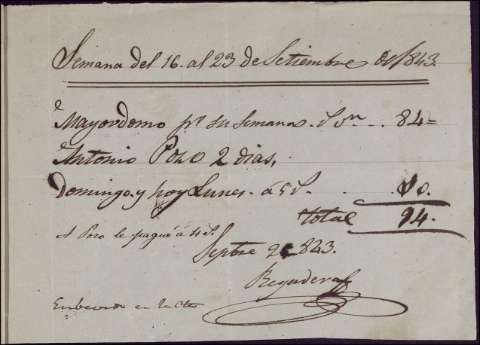 Semana del 16. al 23 de Setiembre de 1843.
Mayordomo pr. su semana 84=
Antonio Pozo 2 dias,
Domingo y hoy Lunes á 5 10.
total 94.
A Pozo le pagué á 4
Septre 843.
Regadera
en